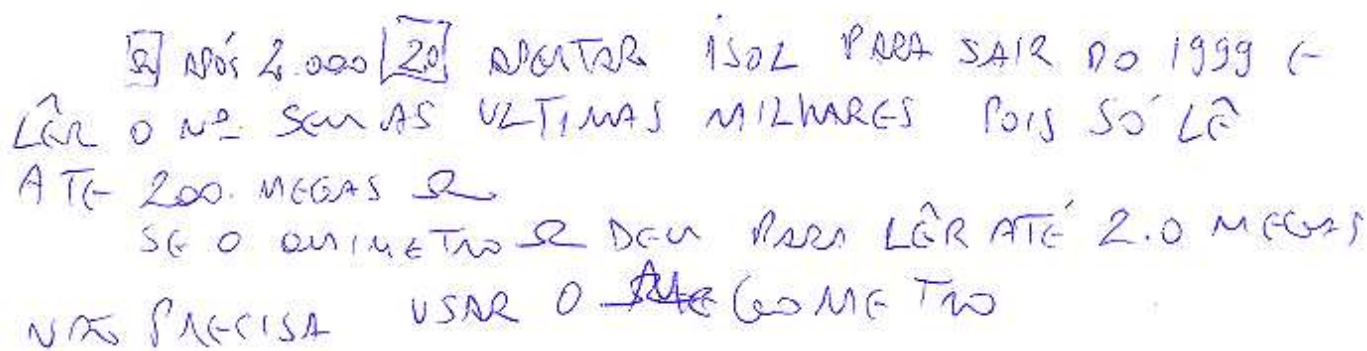 Ω APÓS 2.000 20 APERTAR ISOL PARA SAIR DO 1999 E
LÊR O Nº SEM AS ULTIMAS MILHARES POIS SÓ LÊ
ATE 200. MEGAS Ω
SE O OMIMETRO Ω DER PARA LÊR ATÉ 2.0 MEGAS
NÃO PRECISA USAR O MEGOMETRO